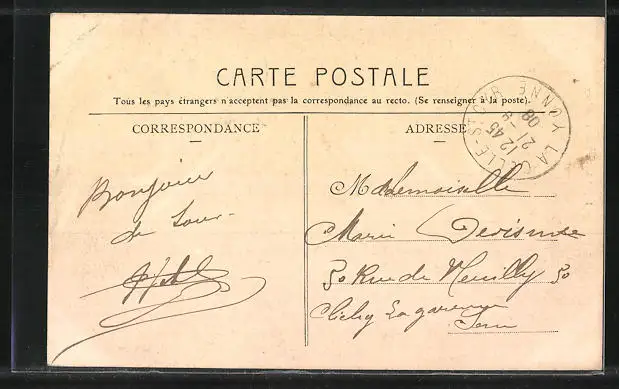 CARTE POSTALE
Tous les pays étrangers n'acceptent pas la correspondance au recto. (Se renseigner à la poste).
CORRESPONDANCE
ADRESSE
LA CELLE-ST-CYR YONNE
12-45
21-9
08
Bonjour
de
Mademoiselle
Marie
50 Rue de Neuilly 50
Clichy La garenne
Seine